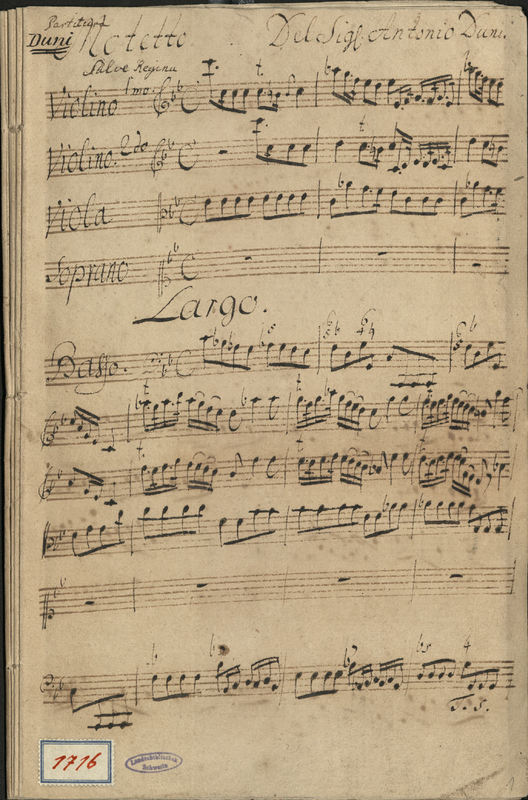 Partitura
Duni Motetto Del Sigr. Antonio Duni.
Salve Regina
Violino 1mo.
Violino. 2do
Viola
Soprano
Largo.
Basso.
1716
Landesbibliothek
Schwerin